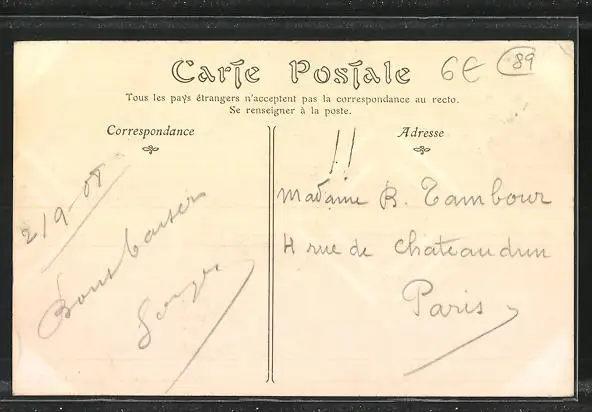 Carte Postale
6€
89
Tous les pays étrangers n'acceptent pas la correspondance au recto.
Se renseigner à la poste.
Correspondance
Adresse
2/9-08
Bons baisers
!!
Madame B. Tambour
4 rue de Chateaudun
Paris